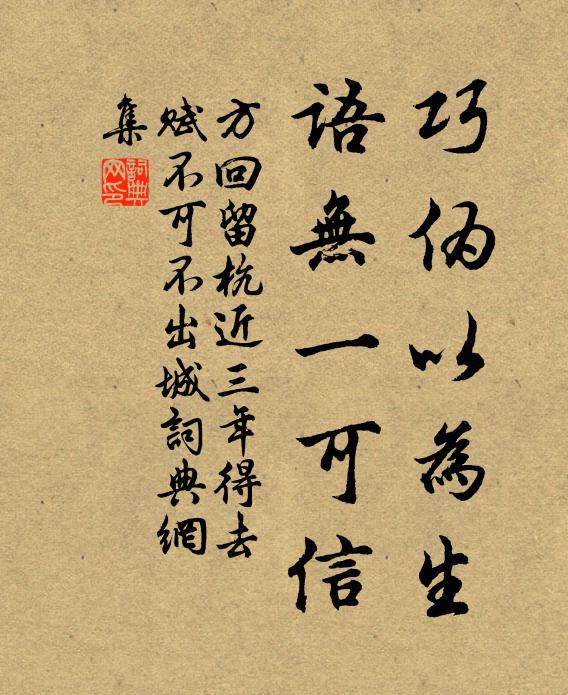 巧偽以為生
語無一可信
方回留杭近三年得去
賦不可不出城詞典網
集
詞典网印